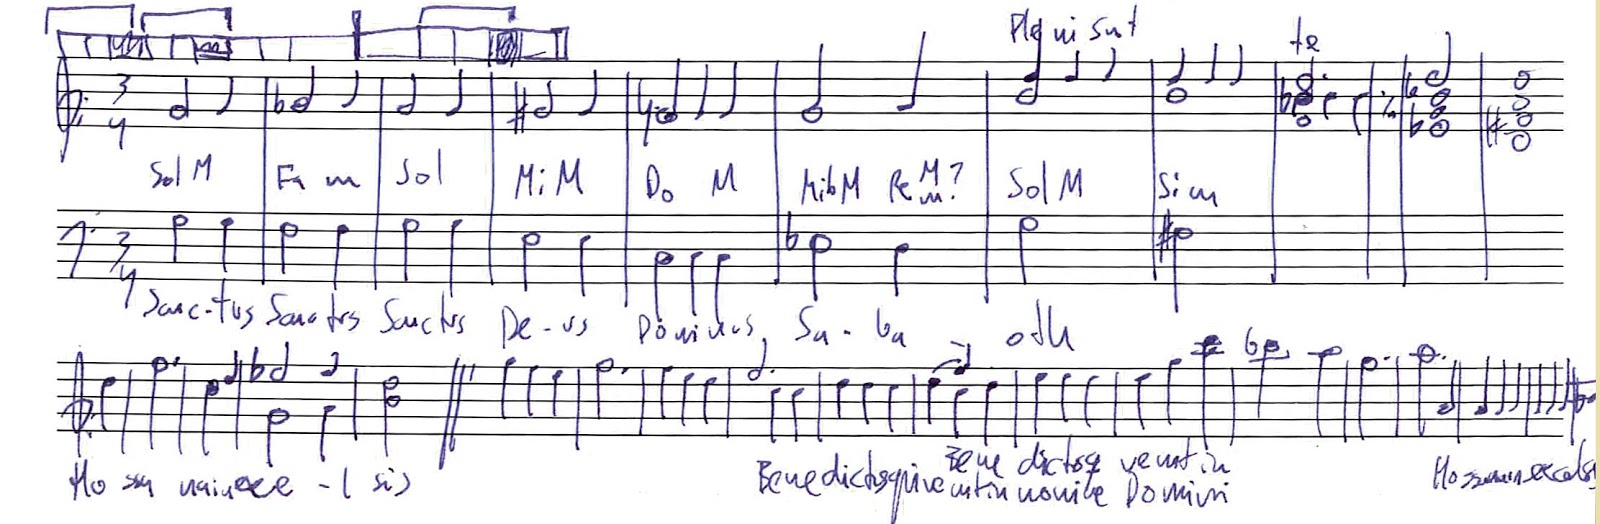 Ple ni sunt
te
3
4
Sol M Fa m Sol Mi M Do M Mib M Re M m? Sol M Si m
3
4
Sanc-tus Sanctus Sanctus De-us Dominus, Sa-ba oth
Bene dictus q venit in
Ho sa nainexce-l sis Benedictusquivenitin nomine Domini Hossannainexcelsis